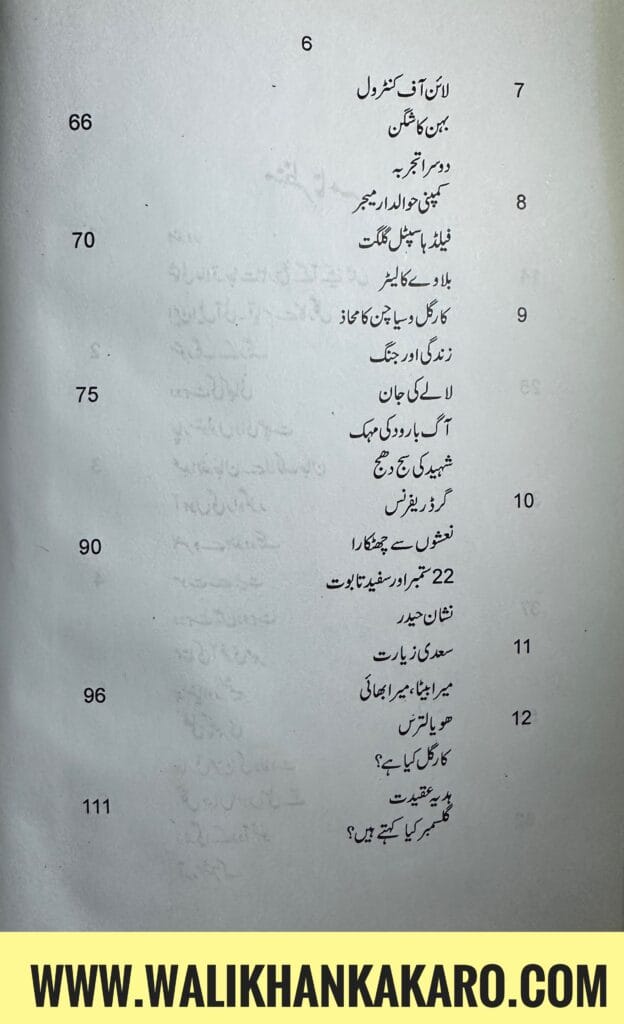 6
7 لائن آف کنٹرول
بہن کا شگن 66
دوسرا تجربہ
8 کمپنی حوالدار میجر
فیلڈ ہاسپٹل گلگت 70
بلاوے کا لیٹر
9 کارگل و سیاچن کا محاذ
زندگی اور جنگ
لالے کی جان 75
آگ بارود کی مہک
شہید کی سج دھج
10 گرڈ ریفرنس
نعشوں سے چھٹکارا 90
22 ستمبر اور سفید تابوت
نشان حیدر
11 سعدی زیارت
میرا بیٹا، میرا بھائی 96
12 ھویا لترس
کارگل کیا ہے؟
ہدیہ عقیدت 111
گلسمبر کیا کہتے ہیں؟
WWW.WALIKHANKAKARO.COM